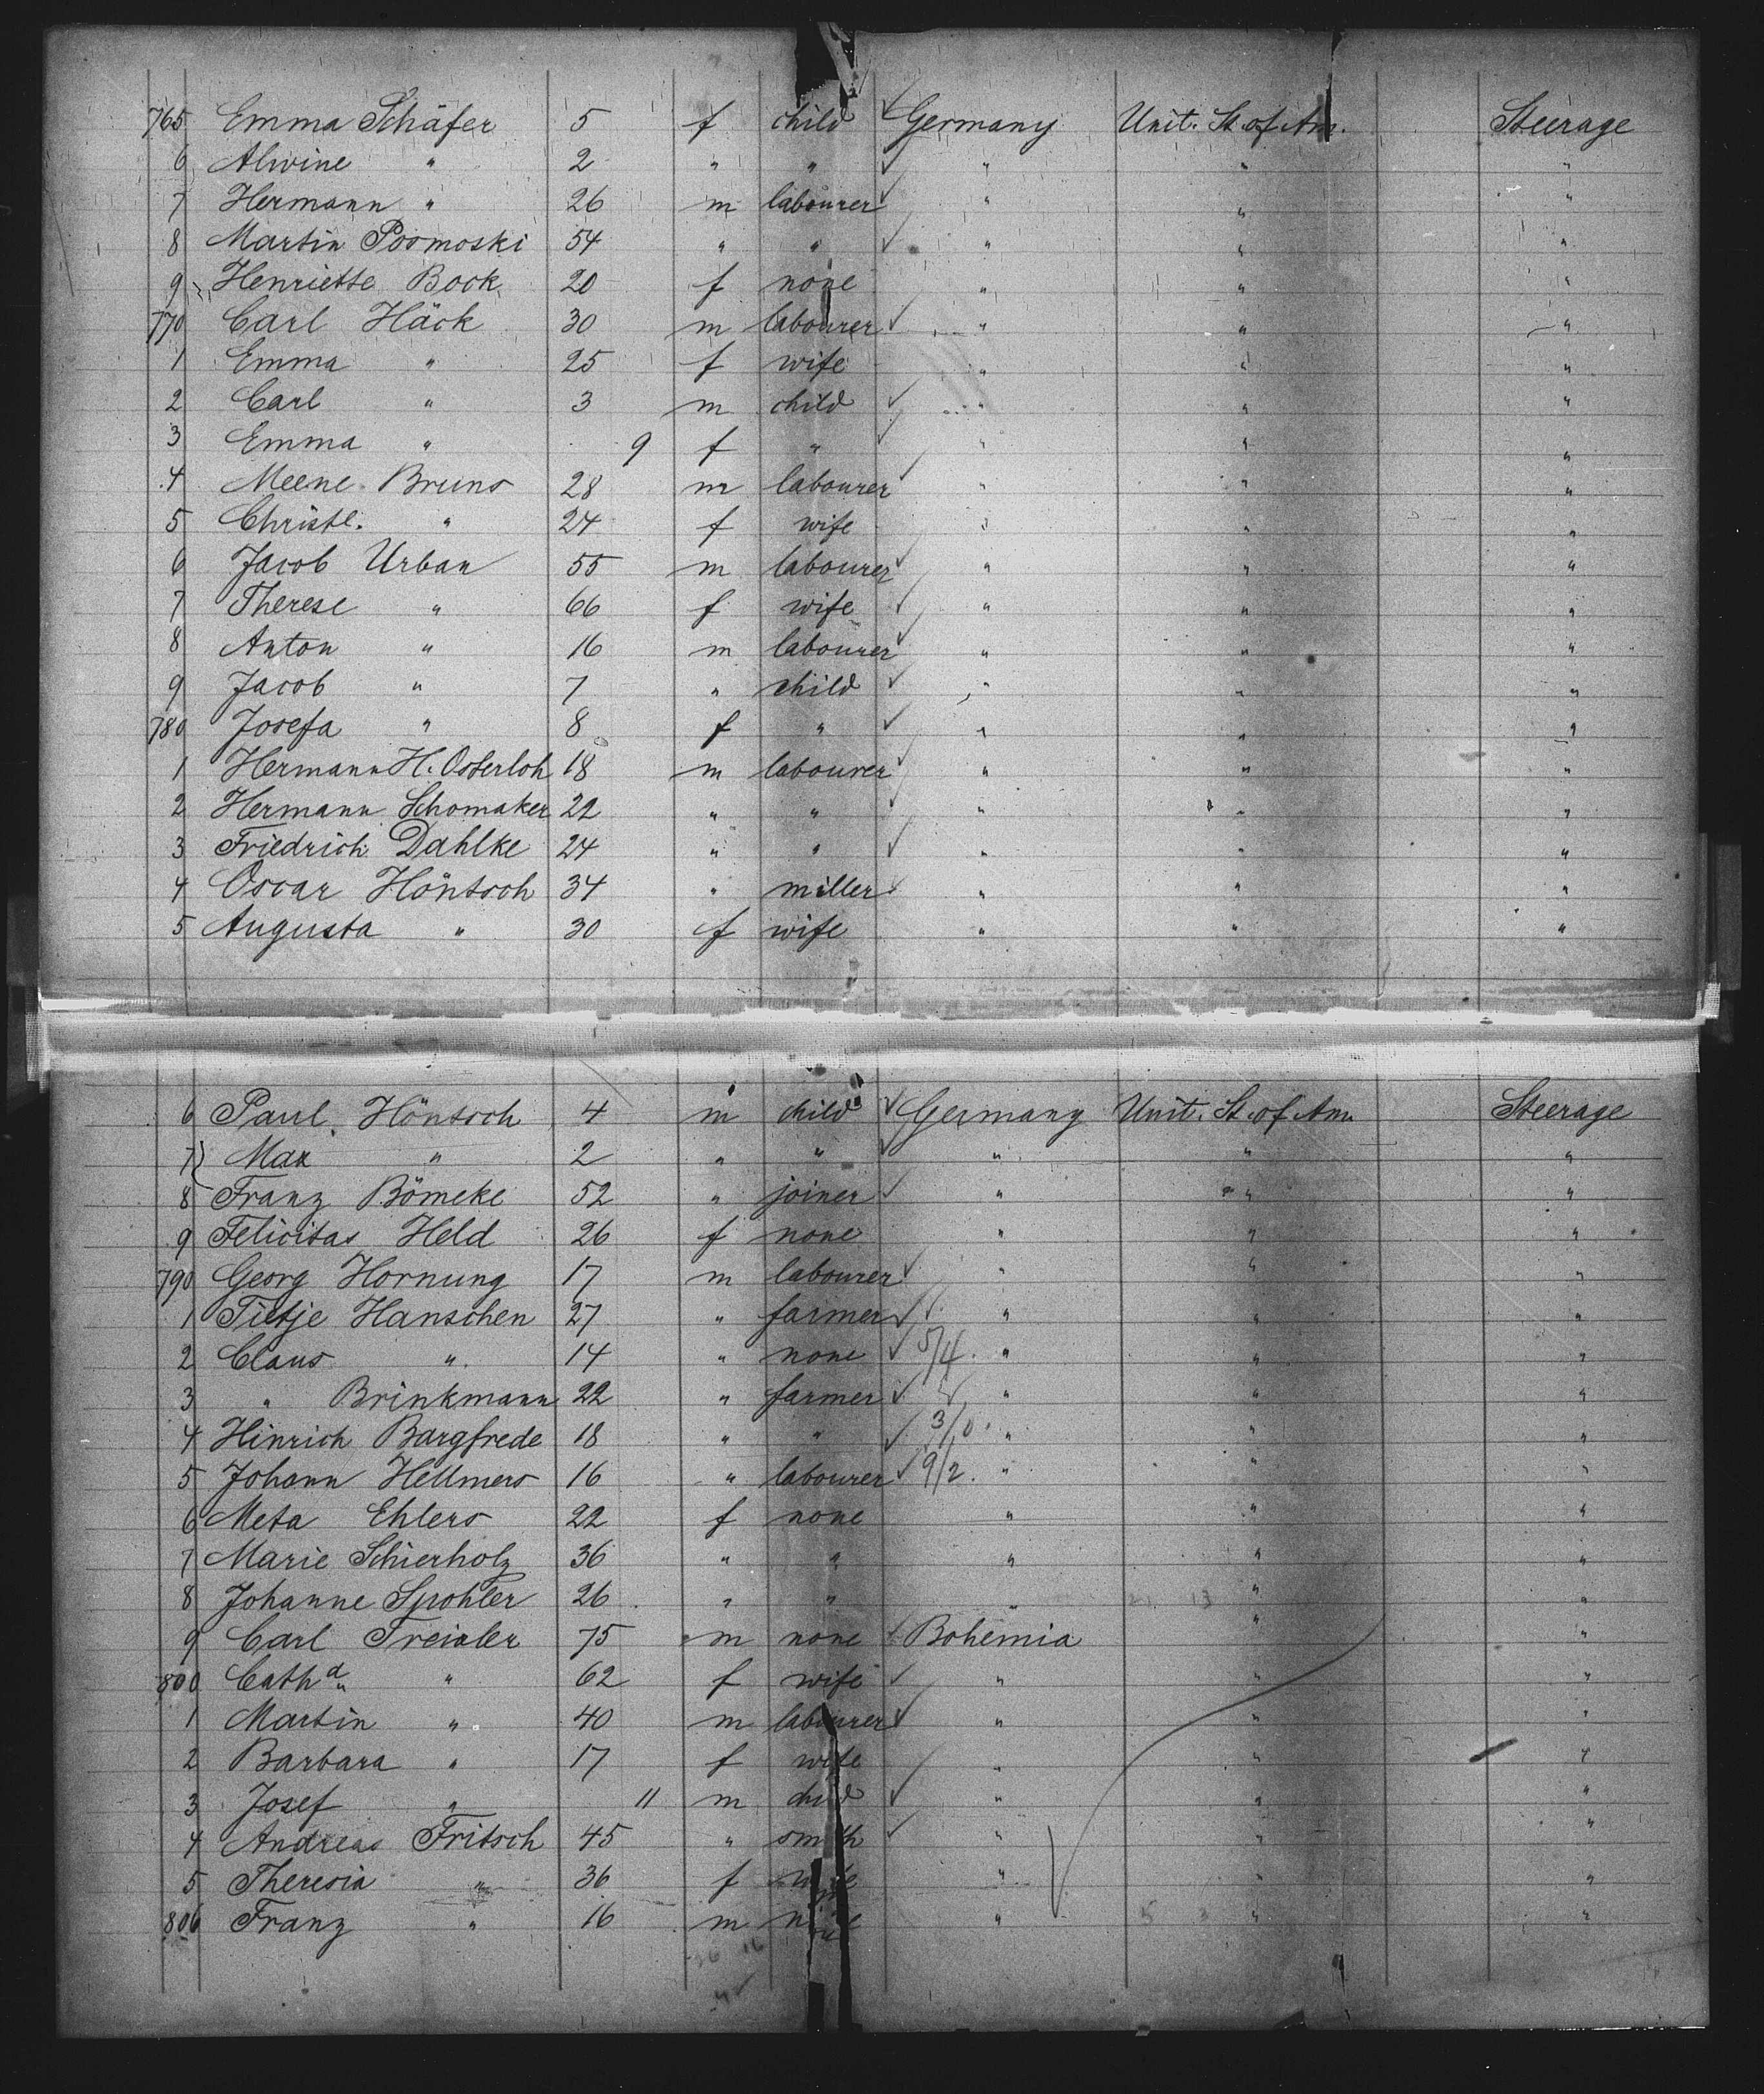 765 Emma Schäfer 5 f child ✓ Germany Unit. St. of Am. Steerage
6 Alwine " 2 " " ✓ " " "
7 Hermann " 26 m labourer ✓ " " "
8 Martin Posmoski 54 " " ✓ " " "
9 Henriette Bock 20 f none " " "
770 Carl Häck 30 m labourer ✓ " " "
1 Emma " 25 f wife " " "
2 Carl " 3 m child ✓ " " "
3 Emma " 9 f " ✓ " " "
4 Meene Bruns 28 m labourer ✓ " " "
5 Christe. " 24 f wife " " "
6 Jacob Urban 55 m labourer ✓ " " "
7 Therese " 66 f wife ✓ " " "
8 Anton " 16 m labourer ✓ " " "
9 Jacob " 7 " child ✓ " " "
780 Josefa " 8 f " ✓ " " "
1 Hermann H. Osterloh 18 m labourer ✓ " " "
2 Hermann Schomaker 22 " " ✓ " " "
3 Friedrich Dahlke 24 " " ✓ " " "
4 Oscar Höntsch 34 " miller ✓ " " "
5 Augusta " 30 f wife " " "
6 Paul Höntsch 4 m child ✓ Germany Unit. St. of Am. Steerage
7 Max " 2 " " ✓ " " "
8 Franz Bömeke 52 " joiner ✓ " " "
9 Felicitas Held 26 f none " " "
790 Georg Hornung 17 m labourer ✓ " " "
1 Tietje Hanschen 27 " farmer ✓ ✓ " " "
2 Claus " 14 " none ✓ 5/4 " " "
3 " Brinkmann 22 " farmer ✓ " " "
4 Hinrich Bargfrede 18 " " ✓ 3/0 " " "
5 Johann Hellmers 16 " labourer ✓ 9/2 " " "
6 Meta Ehlers 22 f none " " "
7 Marie Schierholz 36 " " " " "
8 Johanne Spohler 26 " " " " "
9 Carl Treixler 75 m none ✓ Bohemia " "
800 Catha " 62 f wife ✓ " " "
1 Martin " 40 m labourer ✓ " " "
2 Barbara " 17 f wife " " "
3 Josef " 11 m child ✓ " " "
4 Andreas Fritsch 45 " smith ✓ " " "
5 Theresia " 36 f wife " " "
806 Franz " 16 m none " " "